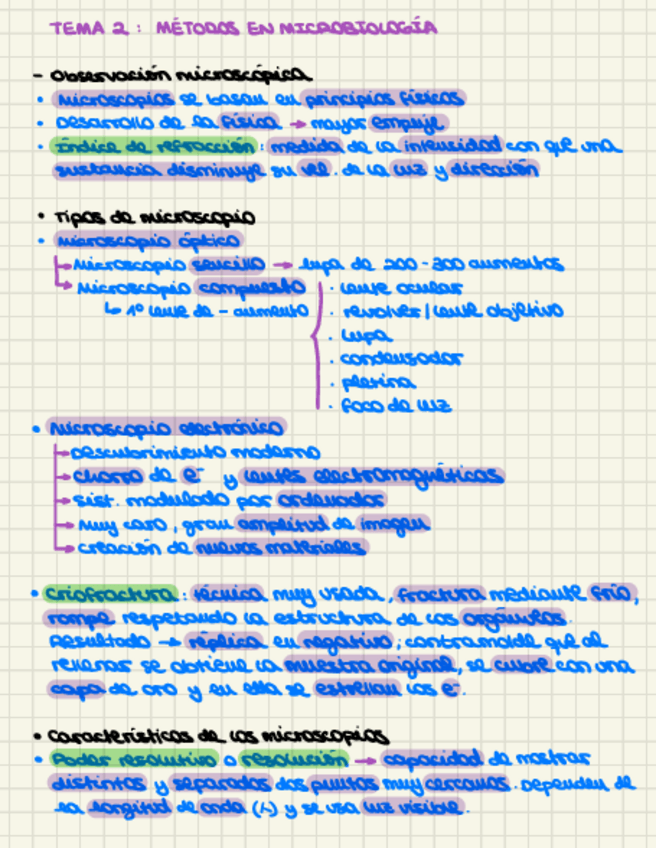 TEMA 2 : MÉTODOS EN MICROBIOLOGÍA
- Observación microscópica
• Microscopios se basan en principios físicos
• Desarrollo de la física → mayor empuje
• Índice de refracción : medida de la intensidad con que una
sustancia disminuye su vel. de la luz y dirección
• Tipos de microscopio
• Microscopio óptico
→ Microscopio sencillo → lupa de 200-300 aumentos
→ Microscopio compuesto
↳ 1º lente de - aumento
· lente ocular
· revolver / lente objetivo
· lupa
· condensador
· pletina
· foco de luz
• Microscopio electrónico
→ descubrimiento moderno
→ chorro de e⁻ y lentes electromagnéticas
→ sist. modulado por ordenador
→ muy caro, gran amplitud de imagen
→ creación de nuevos materiales
• Criofractura : técnica muy usada, fractura mediante frío,
rompe respetando la estructura de los orgánulos.
Resultado → réplica en negativo ; contramolde que al
rellenar se obtiene la muestra original, se cubre con una
capa de oro y en ella se estrellan los e⁻.
• Características de los microscopios
• Poder resolutivo o resolución → capacidad de mostrar
distintos y separados dos puntos muy cercanos. Dependen de
la longitud de onda (λ) y se usa luz visible.